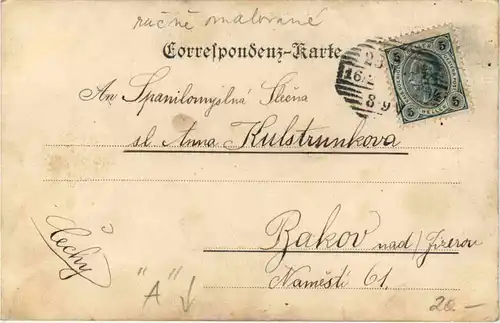 ručně omalované
Correspondenz-Karte
5 5
23
16.2
8-9V
HELLER
5 5
An Spanilomyslná Slečna
sl. Anna Kulstrunkova
Bakov nad/Jizerou
Náměstí 61.
Čechy
"A" ↓
20.-